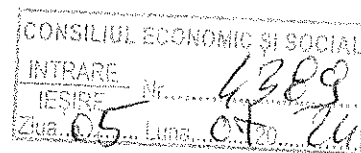 CONSILIUL ECONOMIC ŞI SOCIAL
INTRARE
IEŞIRE Nr. 4389
Ziua 05 Luna 07 20 24